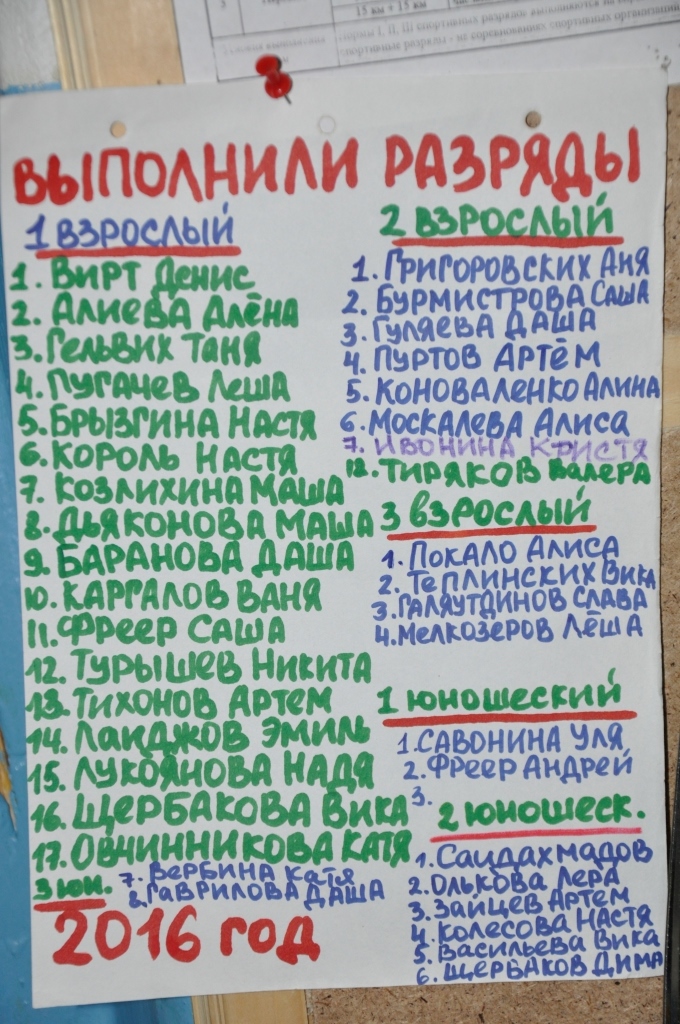 15 км + 15 км
ВЫПОЛНИЛИ РАЗРЯДЫ
1 ВЗРОСЛЫЙ
1. Вирт Денис
2. Алиева Алёна
3. Гельвих Таня
4. Пугачев Леша
5. Брызгина Настя
6. Король Настя
7. Козлихина Маша
8. Дьяконова Маша
9. Баранова Даша
10. Каргалов Ваня
11. Фреер Саша
12. Турышев Никита
13. Тихонов Артем
14. Ланджов Эмиль
15. Лукоянова Надя
16. Щербакова Вика
17. Овчинникова Катя
3 юн.
7. Вербина Катя
8. Гаврилова Даша
2016 год
2 ВЗРОСЛЫЙ
1. Григоровских Аня
2. Бурмистрова Саша
3. Гуляева Даша
4. Пуртов Артём
5. Коноваленко Алина
6. Москалева Алиса
7. Ивонина Кристя
12. Тиряков Валера
3 взрослый
1. Покало Алиса
2. Теплинских Вика
3. Галяутдинов Слава
4. Мелкозеров Лёша
1 юношеский
1. Савонина Уля
2. Фреер Андрей
3.
2 юношеск.
1. Саидахмадов
2. Олькова Лера
3. Зайцев Артем
4. Колесова Настя
5. Васильева Вика
6. Щербаков Дима